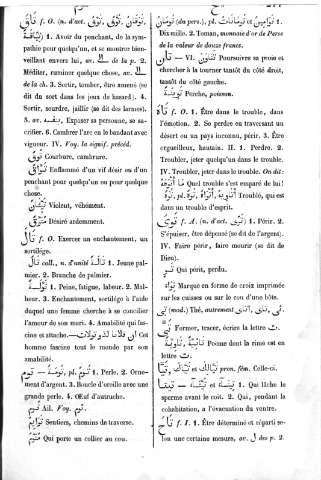 تَاقَ f. O. (n. d'act. تَوْق, تُوُوق, تَوَقَان,
تِيَاقَة) 1. Avoir du penchant, de la sym-
pathie pour quelqu'un, et se montrer bien-
veillant envers lui, av. الى de la p. 2.
Méditer, ruminer quelque chose, av. الى
de la ch. 3. Sortir, tomber, être amené (se
dit du sort dans les jeux de hasard). 4.
Sortir, sourdre, jaillir (se dit des larmes).
5. av. بنفسه, Exposer sa personne, se sa-
crifier. 6. Cambrer l'arc en le bandant avec
vigueur. IV. Voy. le signif. précéd.
تَوَق Courbure, cambrure.
Enflammé d'un vif désir ou d'un
penchant pour quelqu'un ou pour quelque
chose.
Violent, véhément.
Désiré ardemment.
تَالَ f. O. Exercer un enchantement, un
sortilége.
تَال coll., n. d'unité تَالَة 1. Jeune pal-
mier. 2. Branche de palmier.
تُوَلَة 1. Peine, fatigue, labeur. 2. Mal-
heur. 3. Enchantement, sortilége à l'aide
duquel une femme cherche à se concilier
l'amour de son mari. 4. Amabilité qui fas-
cine et attache. — ان فلانا لذو تولات Cet
homme fascine tout le monde par son
amabilité.
تُومَة, pl. تُوم 1. Perle. 2. Orne-
ment d'argent. 3. Boucle d'oreille avec une
grande perle. 4. OEuf d'autruche.
توم Ail. Voy. ثوم.
Sentiers, chemins de traverse.
Qui porte un collier au cou.
تومان (du pers.), pl. تومانات et توامين 1.
Dix mille. 2. Toman, monnaie d'or de Perse
de la valeur de douze francs.
تان — VI. تتاون Poursuivre sa proie et
chercher à la tourner tantôt du côté droit,
tantôt du côté gauche.
Perche, poisson.
تَاهَ f. O. 1. Être dans le trouble, dans
l'émotion. 2. Se perdre en traversant un
désert ou un pays inconnu, périr. 3. Être
orgueilleux, hautain. II. 1. Perdre. 2.
Troubler, jeter quelqu'un dans le trouble.
IV. Troubler, jeter dans le trouble. On dit:
ما اتوهه Quel trouble s'est emparé de lui!
توه, pl. اتواه, اتاويه Trouble, qui est
dans un trouble d'esprit.
تَوِيَ f. A. (n. d'act. تَوًى) 1. Périr. 2.
S'épuiser, être dépensé (se dit de l'argent).
IV. Faire périr, faire mourir (se dit de
Dieu).
تَوٍ Qui périt, perdu.
تِوَاء Marque en forme de croix imprimée
sur les cuisses ou sur le cou d'une bête.
تى (mod.) Thé, autrement تاى, شاى.
Former, tracer, écrire la lettre ت.
تائية, تاوية Poème dont la rime est en
lettre ت.
تَيَّا, تَيَّاك pron. fém. Celle-ci.
1. Qui lâche le
sperme avant le coït. 2. Qui, pendant la
cohabitation, a l'évacuation du ventre.
تَاحَ f. I. 1. Être déterminé et réparti se-
lon une certaine mesure, av. ل des p. 2.